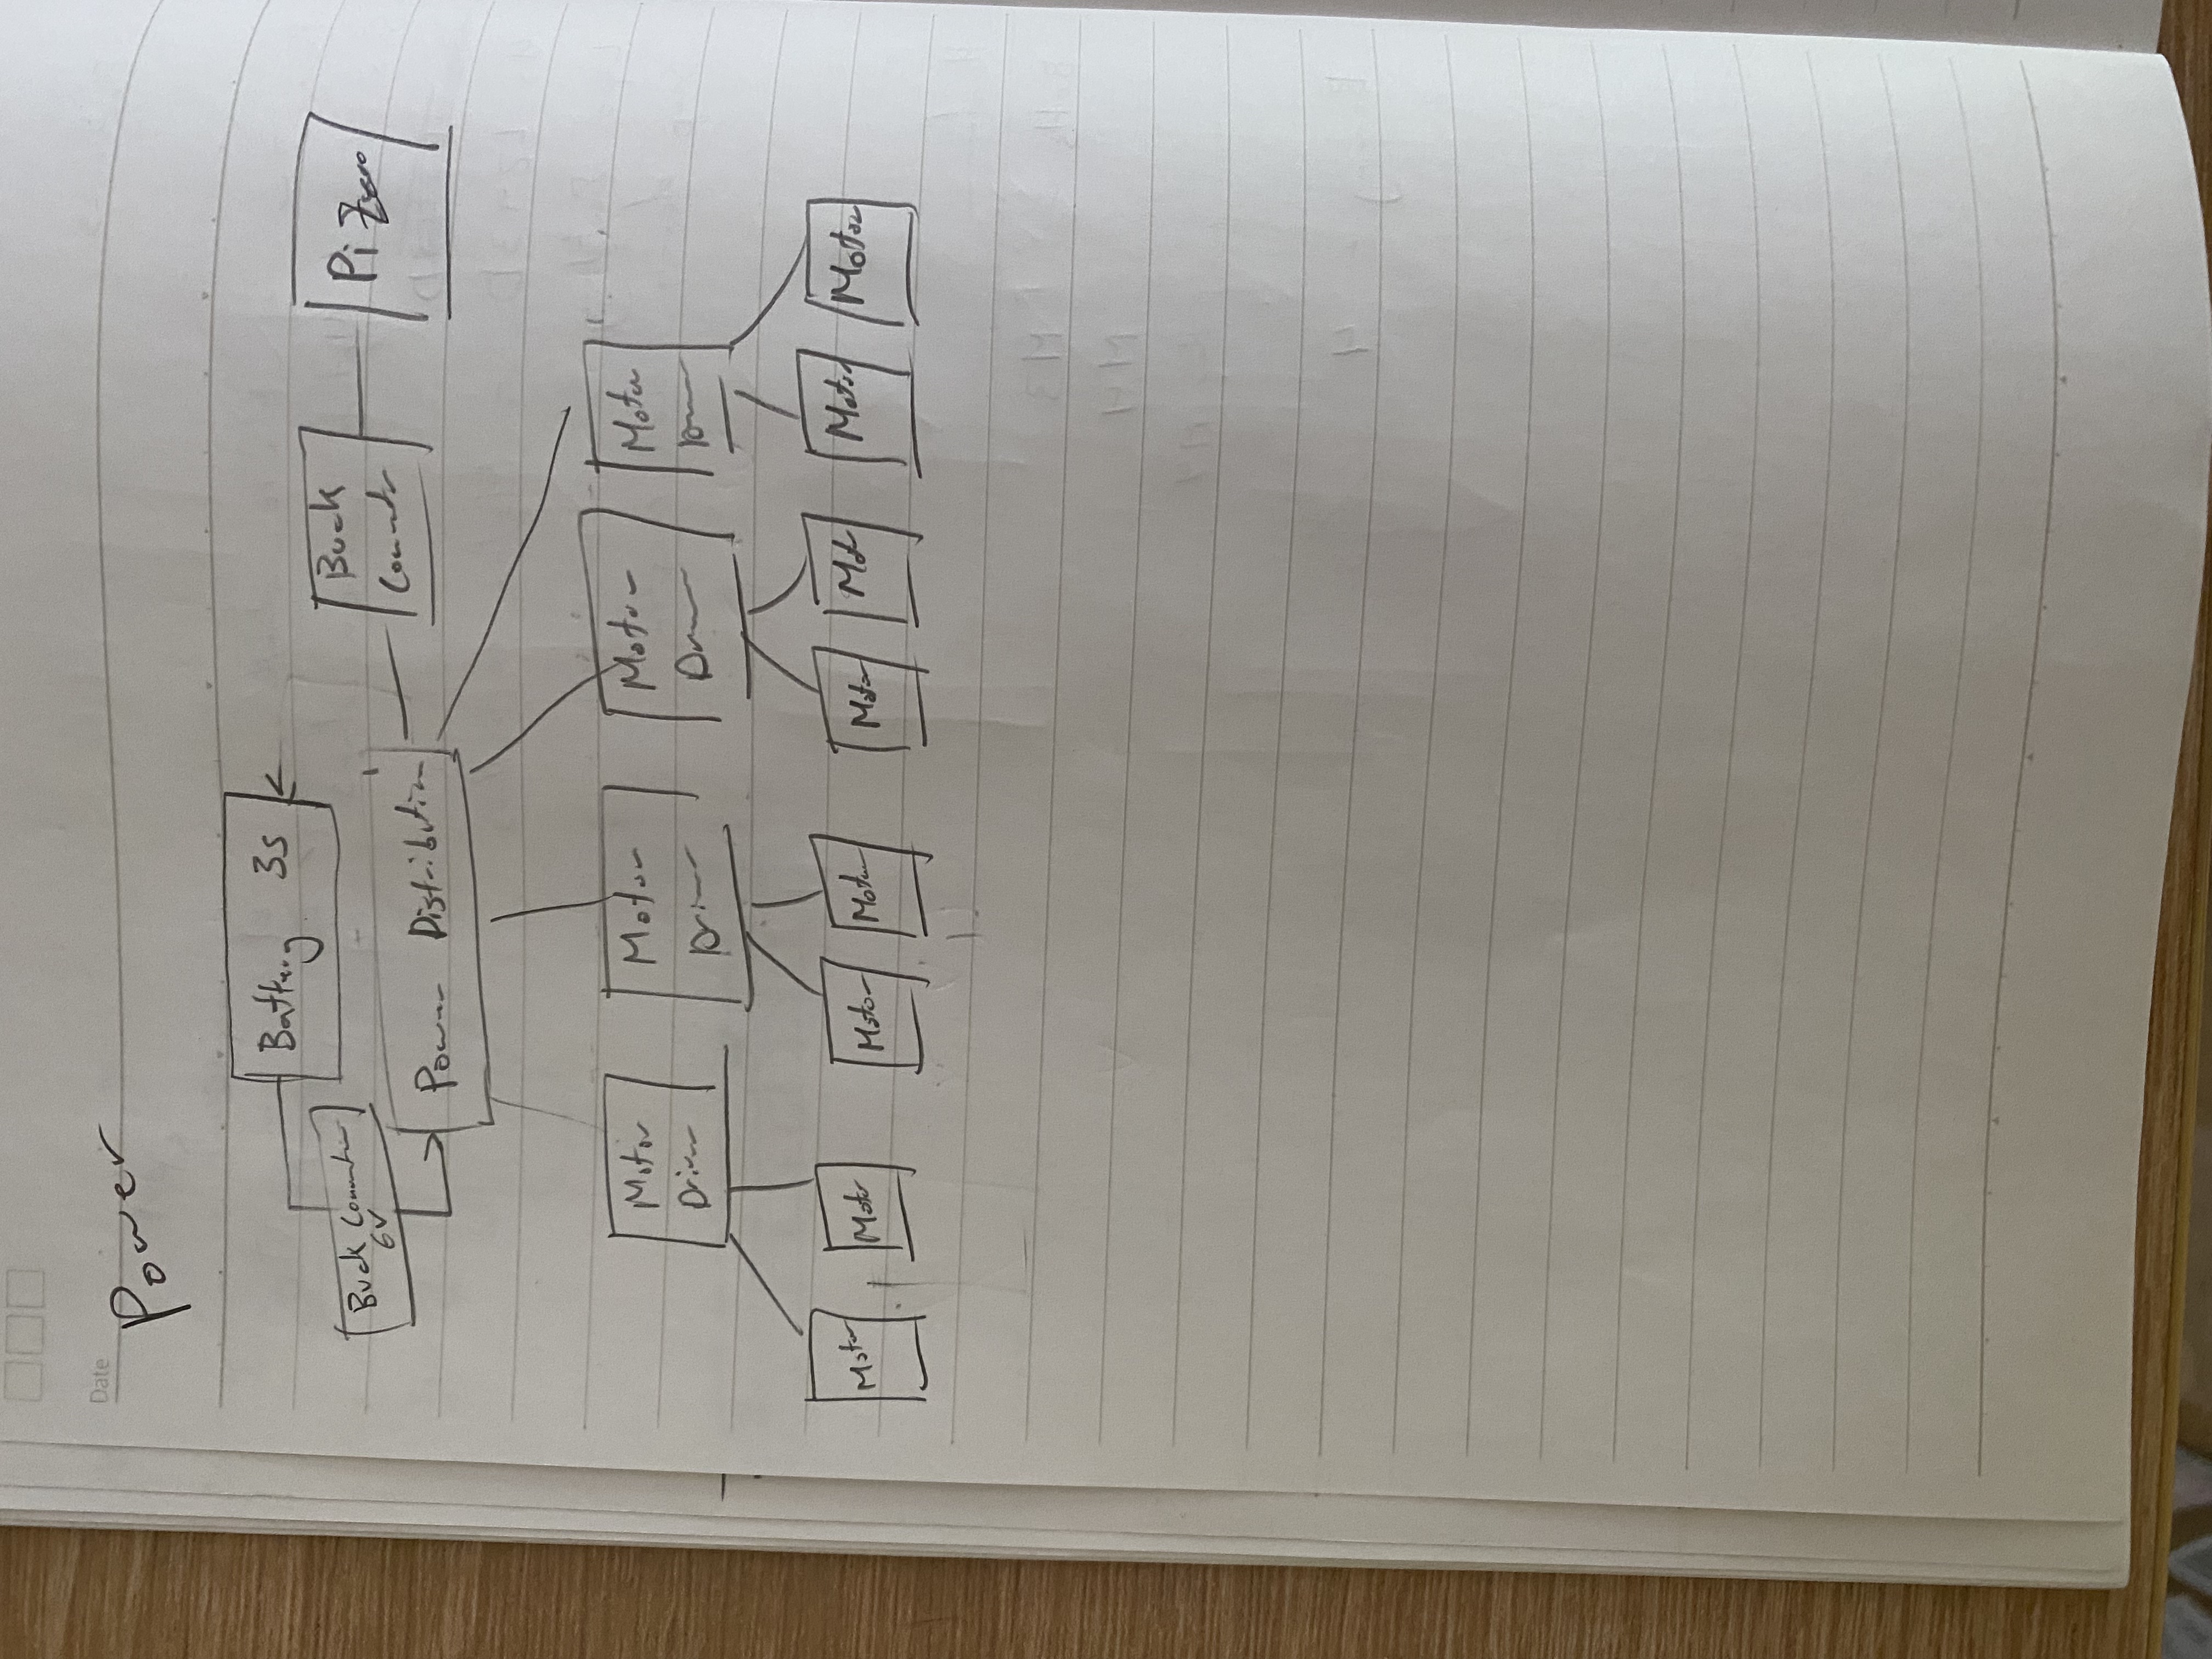 Date
Power
Battery 3s
Buck Converter
6V
Power Distribution
Buck
Converter
Pi Zero
Motor
Driver
Motor
Driver
Motor
Driver
Motor
Driver
Motor
Motor
Motor
Motor
Motor
Mot
Motor
Motor